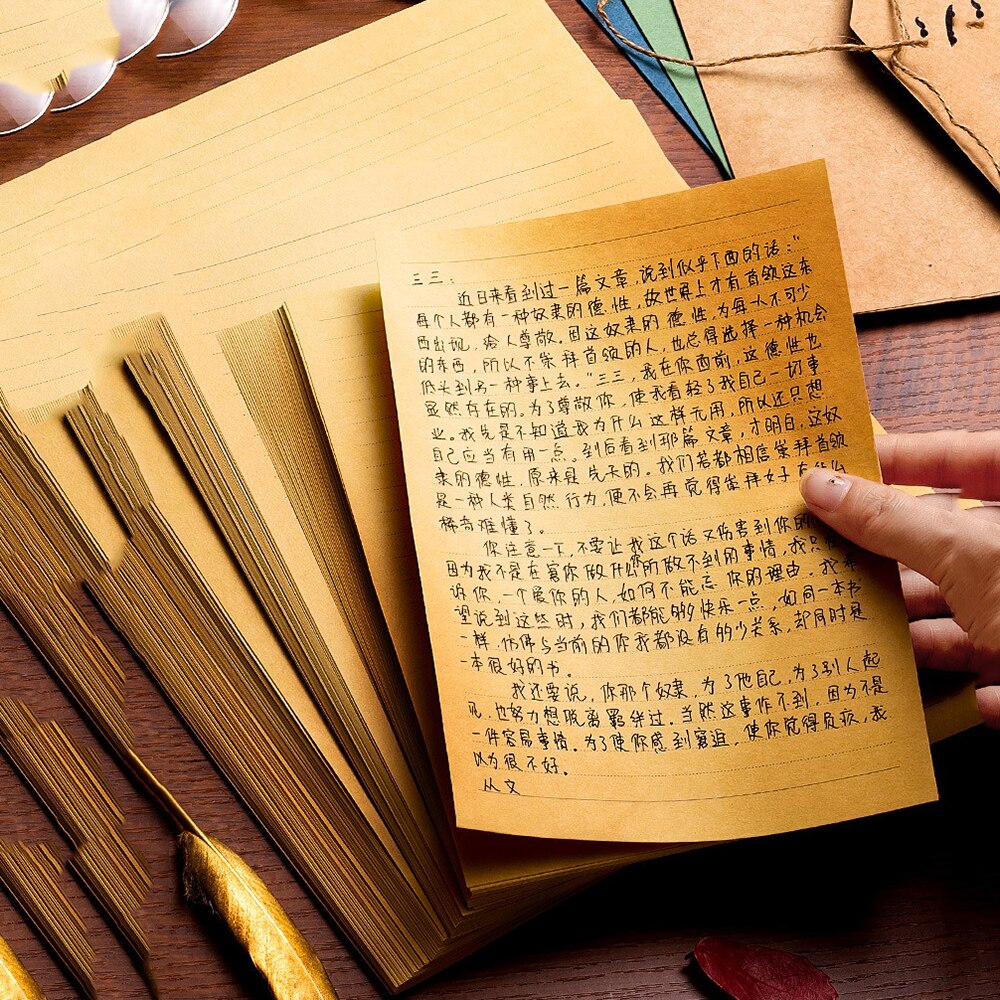 三三：
近日来看到过一篇文章，说到似乎下面的话："
每个人都有一种奴隶的德性，故世界上才有首领这东
西出现，给人尊敬。因这奴隶的德性，为每一人不可少
的东西，所以不崇拜首领的人，也总得选择一种机会
低头到另一种事上去。"三三，我在你面前，这德性也
显然存在的。为了尊敬你，使我看轻了我自己一切事
业。我先是不知道我为什么这样无用，所以还只想
自己应当有用一点。到后看到那篇文章，才明白，这奴
隶的德性，原来是先天的。我们若都相信崇拜首领
是一种人类自然行为，便不会再觉得崇拜女子有什么
稀奇难懂了。
你注意一下，不要让我这个话又伤害到你的
因为我不是在窘你做什么你所做不到的事情，我只
诉你，一个爱你的人，如何不能忘你的理由。我希
望说到这些时，我们都能够快乐一点，如同一本书
一样，仿佛与当前的你我都没有多少关系，却同时是
一本很好的书。
我还要说，你那个奴隶，为了他自己，为了别人起
见，也努力想脱离羁绊过。当然这事作不到，因为不是
一件容易事情。为了使你感到窘迫，使你觉得负疚，我
以为很不好。
从文